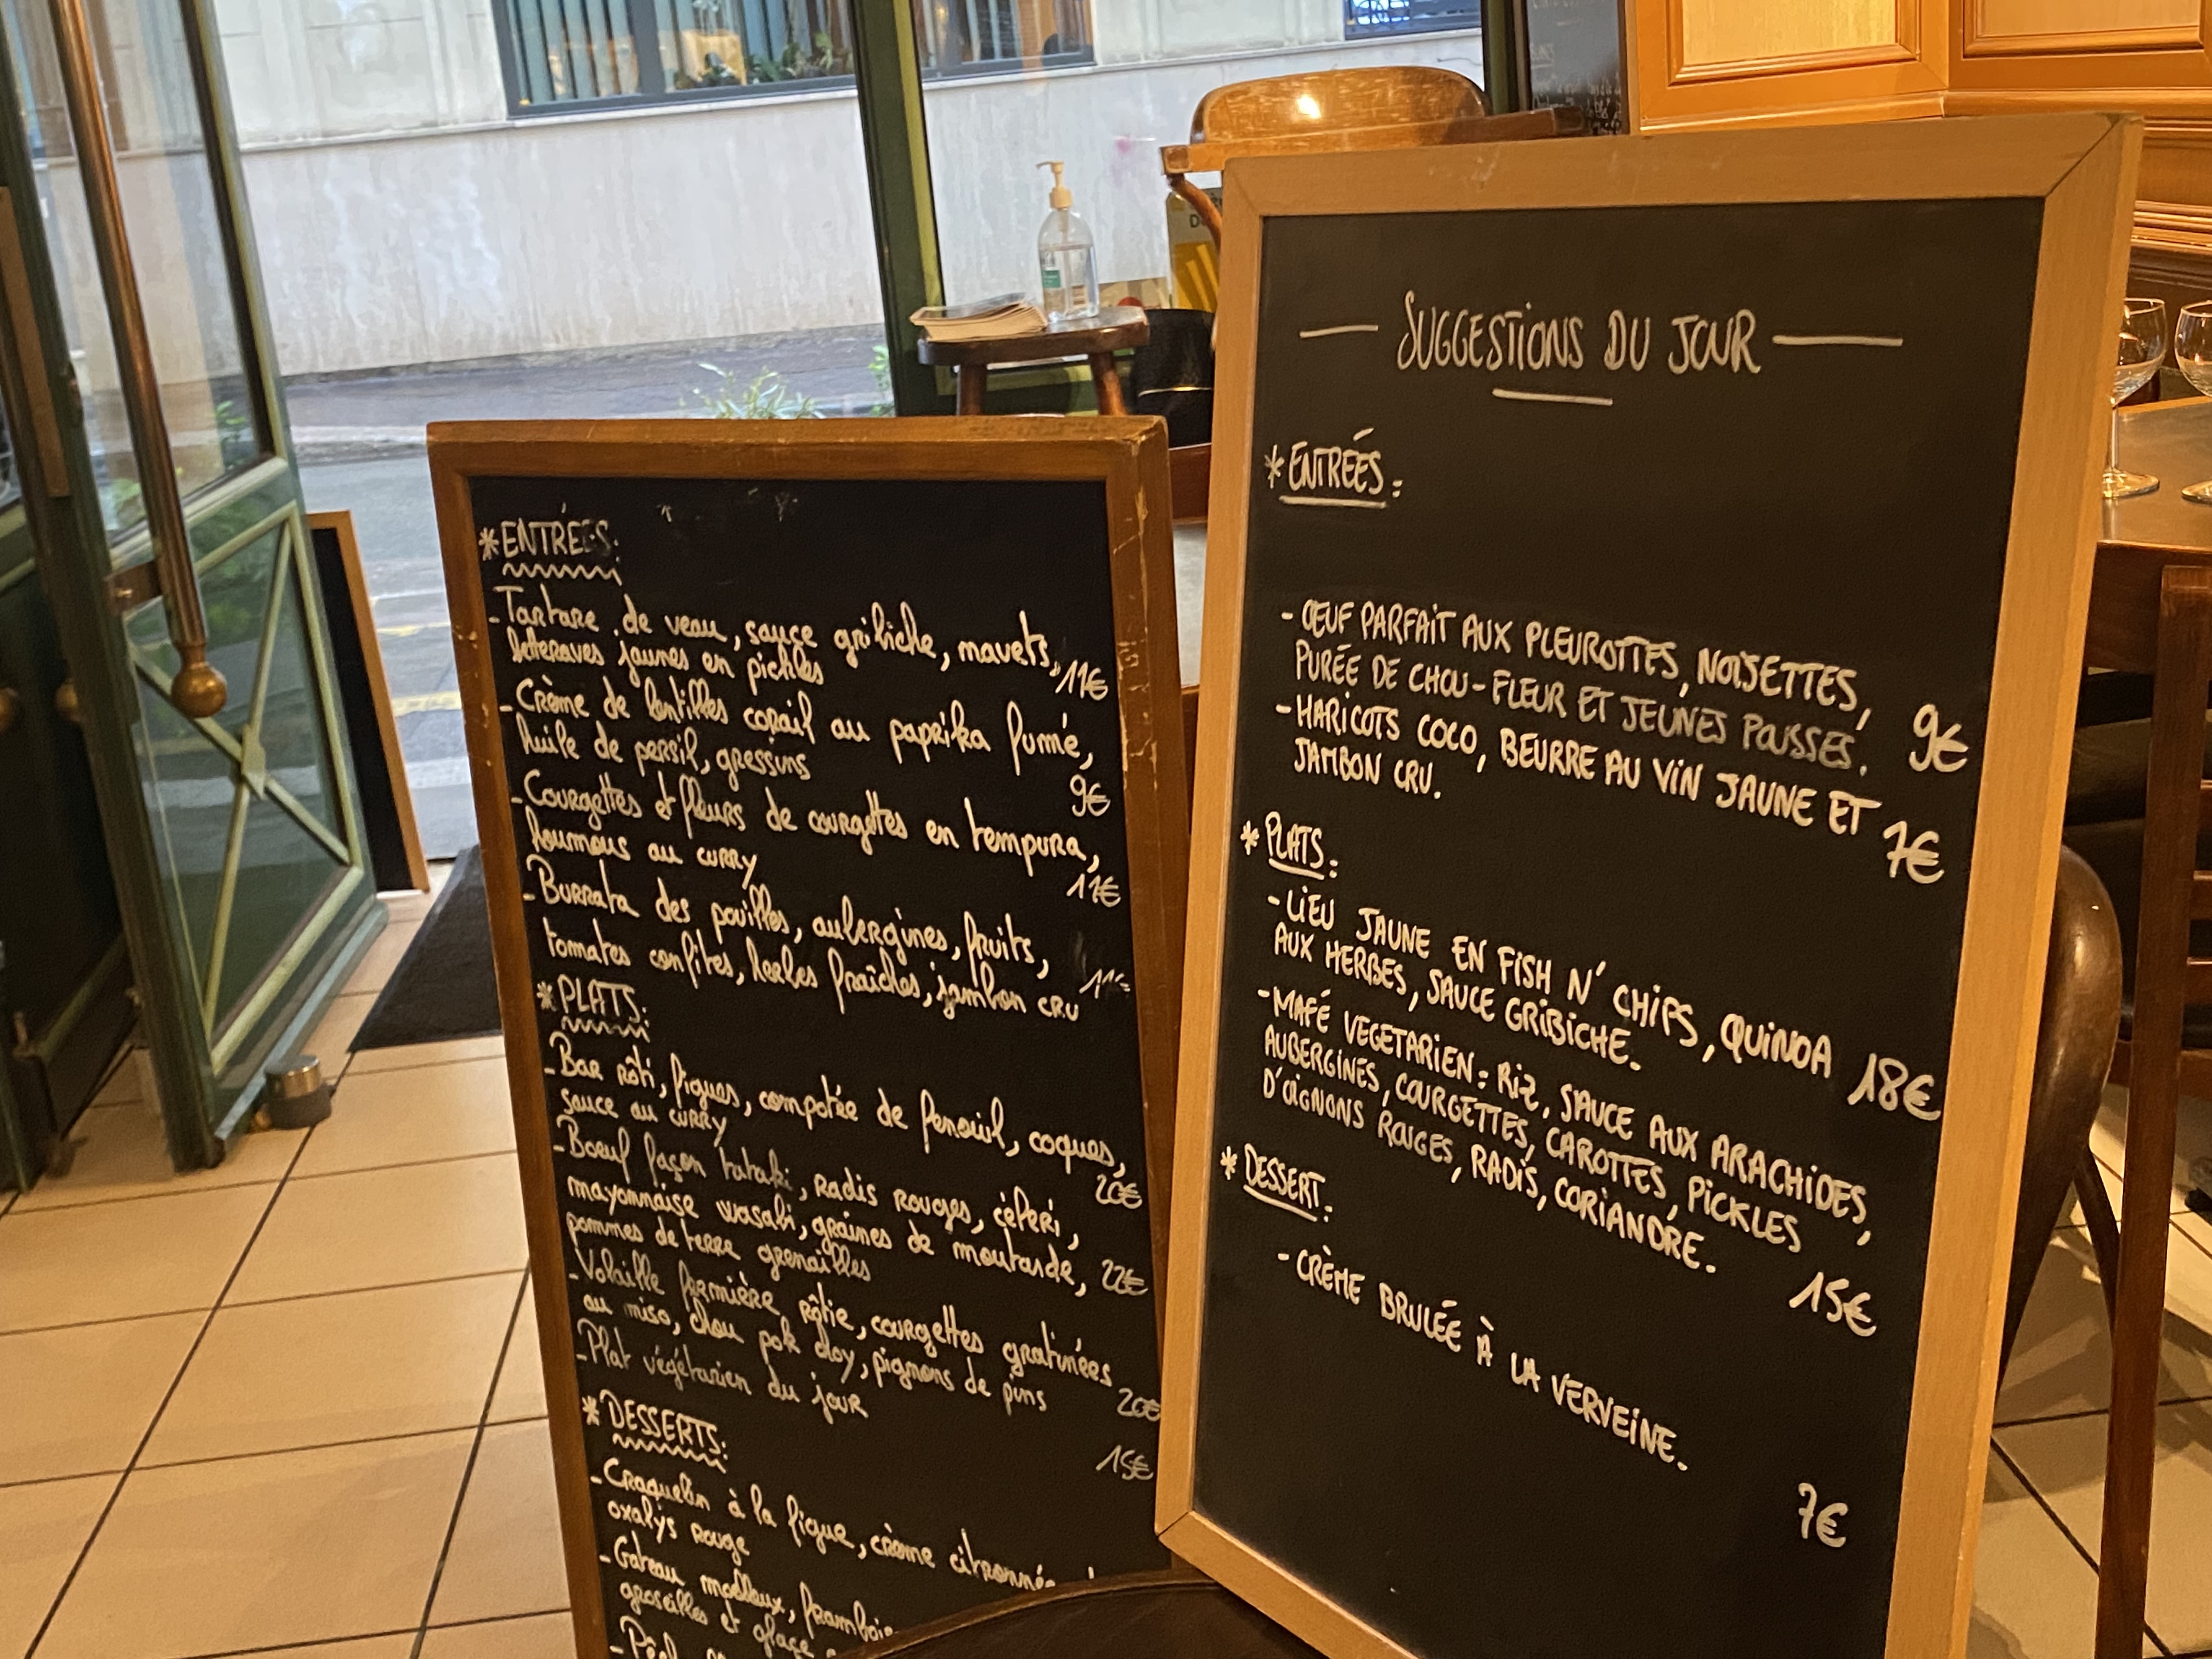 *ENTRÉES:
- Tartare de veau, sauce gribiche, navets,
betteraves jaunes en pickles 11€
- Crème de lentilles corail au paprika fumé,
huile de persil, gressins
9€
- Courgettes et fleurs de courgettes en tempura,
houmous au curry
11€
- Burrata des pouilles, aubergines, fruits,
tomates confites, herbes fraîches, jambon cru 11€
*PLATS:
- Bar rôti, figues, compotée de fenouil, coques,
sauce au curry
20€
- Boeuf façon tataki, radis rouges, céleri,
mayonnaise wasabi, graines de moutarde,
pommes de terre grenailles 22€
- Volaille fermière rôtie, courgettes gratinées
au miso, chou pok choy, pignons de pins
20€
- Plat végétarien du jour
15€
*DESSERTS:
- Craquelin à la figue, crème citronnée
oxalys rouge
- Gateau moelleux,
groseilles et glace
SUGGESTIONS DU JOUR
*ENTRÉES:
- ŒUF PARFAIT AUX PLEUROTTES, NOISETTES,
PURÉE DE CHOU-FLEUR ET JEUNES POUSSES. 9€
- HARICOTS COCO, BEURRE AU VIN JAUNE ET
JAMBON CRU. 7€
* PLATS:
- LIEU JAUNE EN FISH N' CHIPS, QUINOA
AUX HERBES, SAUCE GRIBICHE. 18€
- MAFÉ VEGETARIEN: RIZ, SAUCE AUX ARACHIDES,
AUBERGINES, COURGETTES, CAROTTES, PICKLES
D'OIGNONS ROUGES, RADIS, CORIANDRE.
15€
* DESSERT:
- CRÈME BRULÉE À LA VERVEINE.
7€